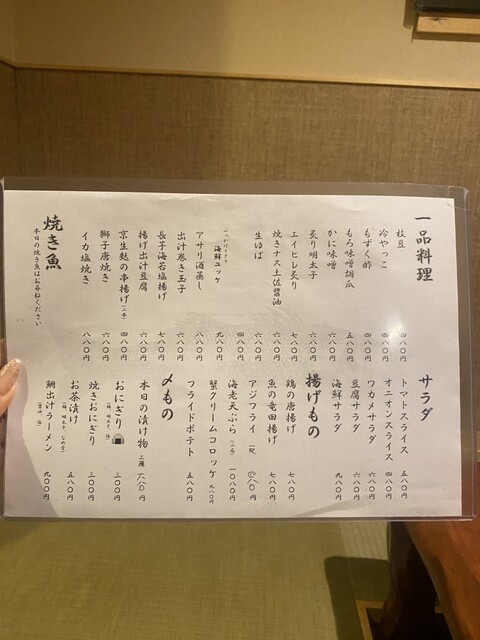 一品料理
枝豆 四八〇円
冷やっこ 四八〇円
もずく酢 四八〇円
もろ味噌胡瓜 五八〇円
かに味噌 六八〇円
炙り明太子 六八〇円
エイヒレ炙り 七八〇円
焼きナス土佐醤油 六八〇円
生ゆば 六八〇円
ぶっかけイクラ
海鮮ユッケ 九八〇円
アサリ酒蒸し 八八〇円
出汁巻き玉子 六八〇円
長芋海苔塩揚げ 七八〇円
揚げ出汁豆腐 六八〇円
京生麩の串揚げ(二本) 四八〇円
獅子唐焼き 六八〇円
イカ塩焼き 八八〇円
焼き魚
本日の焼き魚はお尋ねください
サラダ
トマトスライス 五八〇円
オニオンスライス 四八〇円
ワカメサラダ 六八〇円
豆腐サラダ 六八〇円
海鮮サラダ 九八〇円
揚げもの
鶏の唐揚げ 七八〇円
魚の竜田揚げ 七八〇円
アジフライ 八〇円
海老天ぷら 一〇八〇円
蟹クリームコロッケ 九八〇円
フライドポテト 五八〇円
〆もの
本日の漬け物 三種 六八〇円
おにぎり 三〇〇円
焼きおにぎり 三〇〇円
お茶漬け 五八〇円
鯛出汁ラーメン 九〇〇円